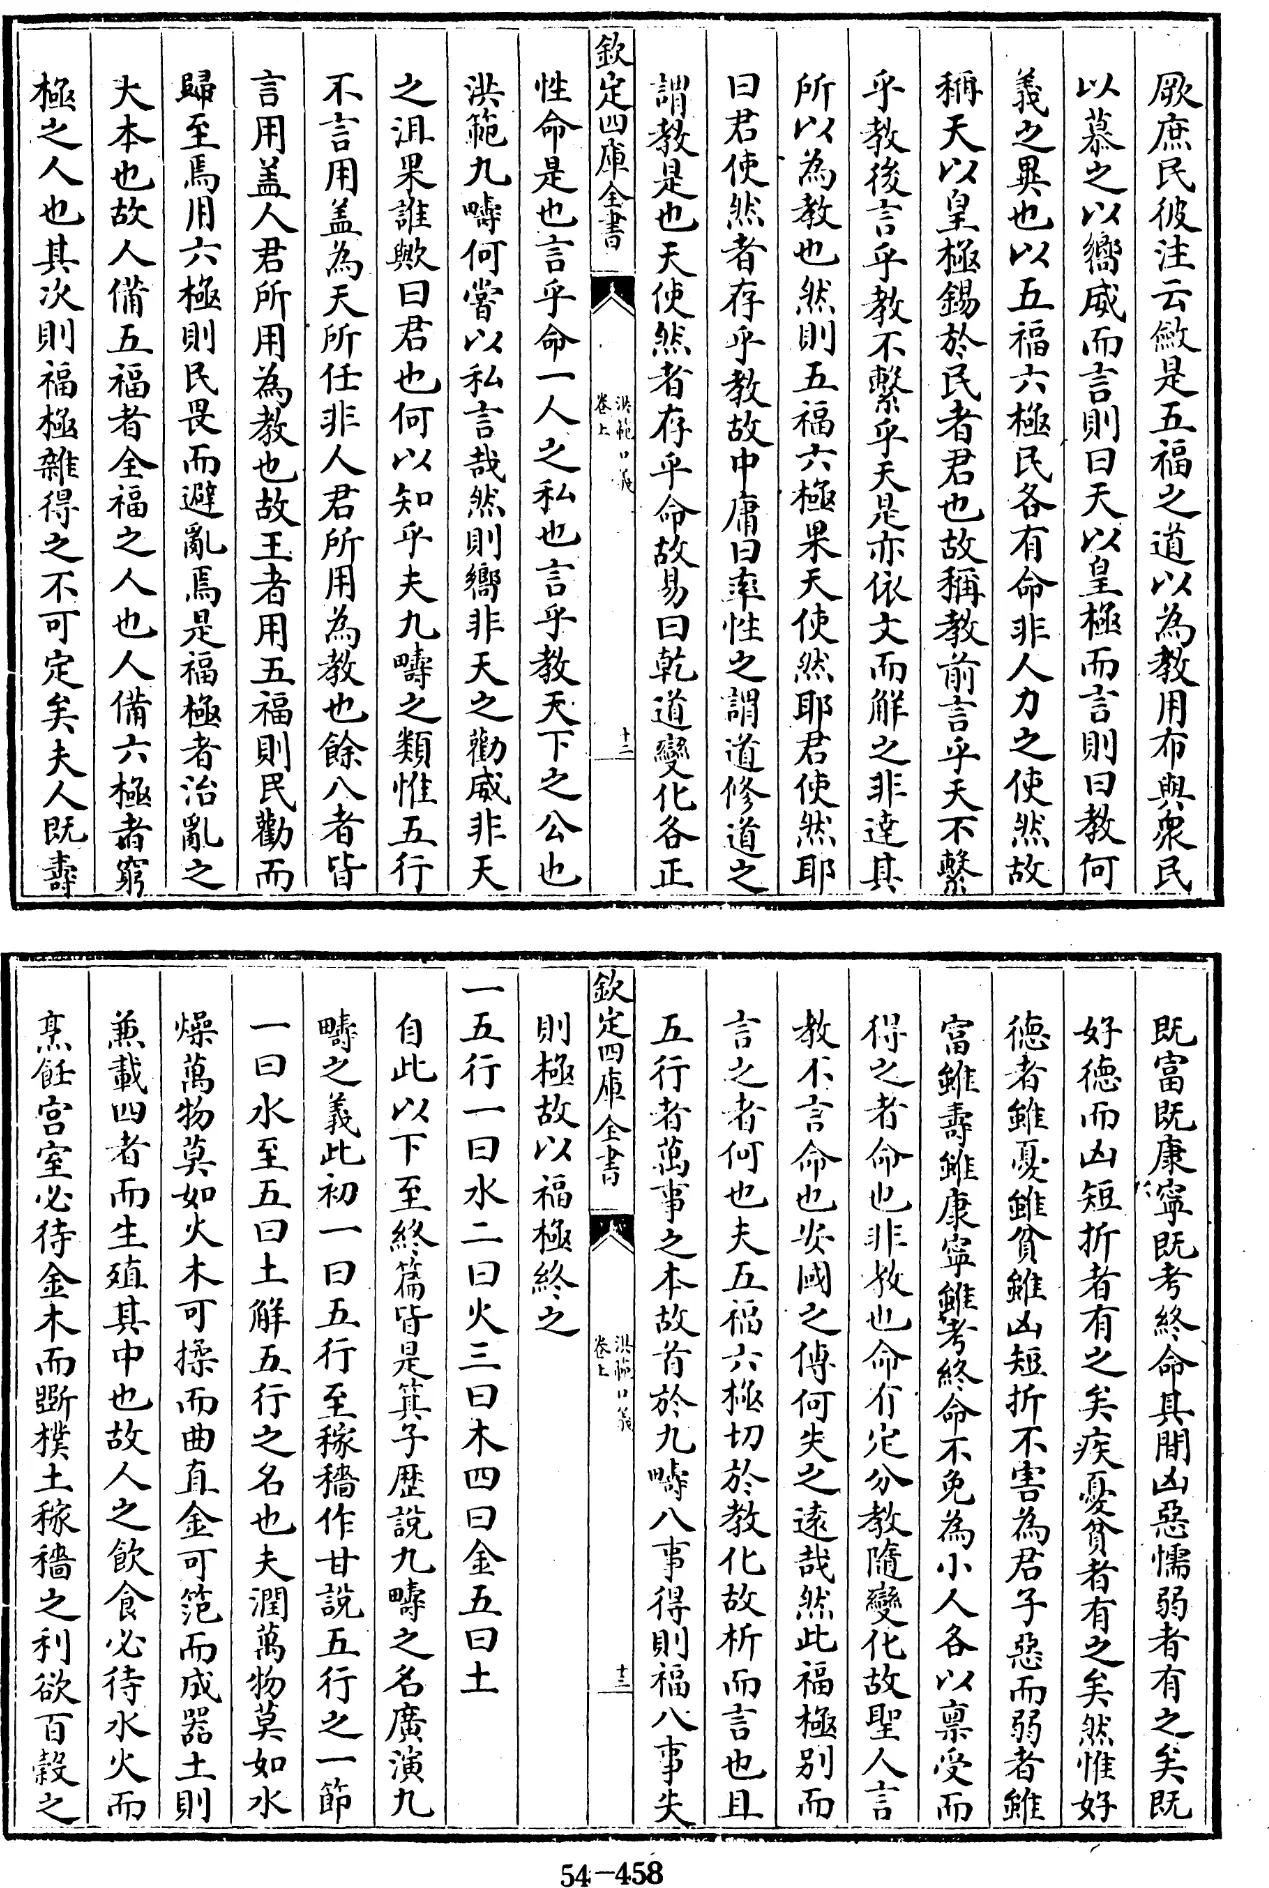 厥庶民彼注云斂是五福之道以為教用布與衆民
以慕之以嚮威而言則曰天以皇極而言則曰教何
義之異也以五福六極民各有命非人力之使然故
稱天以皇極錫於民者君也故稱教前言乎天不繫
乎教後言乎教不繫乎天是亦依文而解之非達其
所以為教也然則五福六極果天使然耶君使然耶
曰君使然者存乎教故中庸曰率性之謂道修道之
謂教是也天使然者存乎命故易曰乾道變化各正
欽定四庫全書
洪範口義
卷上
十二
性命是也言乎命一人之私也言乎教天下之公也
洪範九疇何嘗以私言哉然則嚮非天之勸威非天
之沮果誰歟曰君也何以知乎夫九疇之類惟五行
不言用盖為天所任非人君所用為教也餘八者皆
言用盖人君所用為教也故王者用五福則民勸而
歸至焉用六極則民畏而避亂焉是福極者治亂之
大本也故人備五福者全福之人也人備六極者窮
極之人也其次則福極雜得之不可定矣夫人既壽
既富既康寧既考終命其間凶惡懦弱者有之矣既
好德而凶短折者有之矣疾憂貧者有之矣然惟好
德者雖憂雖貧雖凶短折不害為君子惡而弱者雖
富雖壽雖康寧雖考終命不免為小人各以禀受而
得之者命也非教也命有定分教隨變化故聖人言
教不言命也安國之傳何失之遠哉然此福極别而
言之者何也夫五福六極切於教化故析而言也且
五行者萬事之本故首於九疇八事得則福八事失
欽定四庫全書
洪範口義
卷上
十三
則極故以福極終之
一五行一曰水二曰火三曰木四曰金五曰土
自此以下至終篇皆是箕子歴說九疇之名廣演九
疇之義此初一曰五行至稼穡作甘說五行之一節
一曰水至五曰土解五行之名也夫潤萬物莫如水
燥萬物莫如火木可揉而曲直金可范而成器土則
兼載四者而生殖其中也故人之飲食必待水火而
烹飪宫室必待金木而斲樸土稼穡之利欲百穀之
54—458